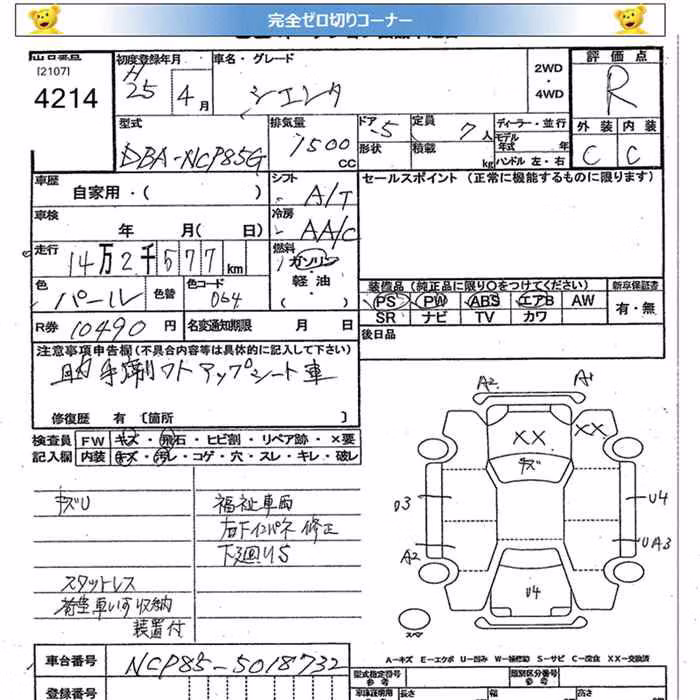 完全ゼロ切りコーナー
[2107]
4214
初度登録年月
H
25 4月
車名・グレード
シエンタ
2WD
・
4WD
評価点
R
外装 内装
C C
型式
DBA-NCP85G
排気量
1500
CC
ドア 5
形状
定員 7人
積載 kg
ディーラー・並行
モデル年式 年
ハンドル 左・右
車歴
自家用・( )
シフト
A/T
セールスポイント (正常に機能するものに限ります)
車検
年 月( 日)
冷房
AA/C
走行
14万2千577km
燃料
ガソリン
軽油
・( )
色
パール
色替
色コード
064
装備品 (純正品に限り○をつけてください)
PS PW ABS エアB AW
SR ナビ TV カワ
新車保証書
有・無
R券 10490円
名変通知期限 月 日
後日品
注意事項申告欄(不具合内容等は具体的に記入して下さい)
助手席リフトアップシート車
修復歴 有 [箇所 ]
検査員
記入欄
FW キズ・飛石・ヒビ割・リペア跡・×要
内装 キズ・汚レ・コゲ・穴・スレ・キレ・破レ
キズU
スタットレス
荷室車いす収納
装置付
福祉車両
右下インパネ修正
下廻りS
A2 A1
XX XX
キズ
U3 U4
A2 UA3
U4
スペア
A―キズ E―エクボ U―凹み W―補修跡 S―サビ C―腐食 XX―交換済
車台番号
NCP85-5018732
登録番号
型式指定番号
参考
類別区分番号
参考
車庫証明用
参考
長さ 幅 高さ